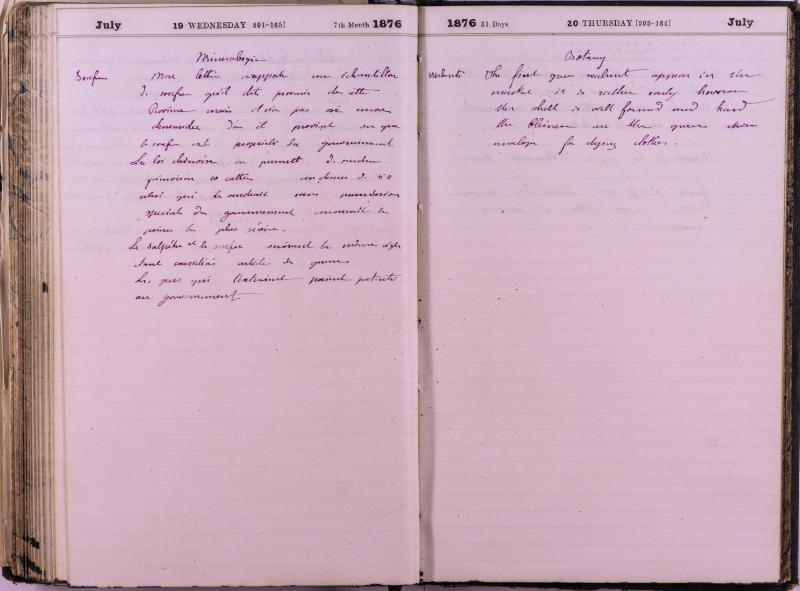 July 19 WEDNESDAY [201-165] 7th Month 1876
Mineralogie
Soufre Mon lettré rapporte un échantillon
de soufre qu'il dit provenir de cette
Province mais il n'a pas
d'où il provient vu que
le soufre est propriété du gouvernement
La loi chinoise permet de vendre
10 catties au dessus de 50
celui qui le vendrait sans permission
speciale du gouvernement encourrait la
peine la plus sévère.
Le salpêtre et le soufre suivent la même règle
étant considérés article de guerre
Les gens qui paient patente
au gouvernement
1876 31 Days 20 THURSDAY [202-164] July
Botany
Walnuts The first green walnuts appear in the
market it is rather early however
the shell is well formed and hard
the Chinese use the green
envelope for dying clothes.